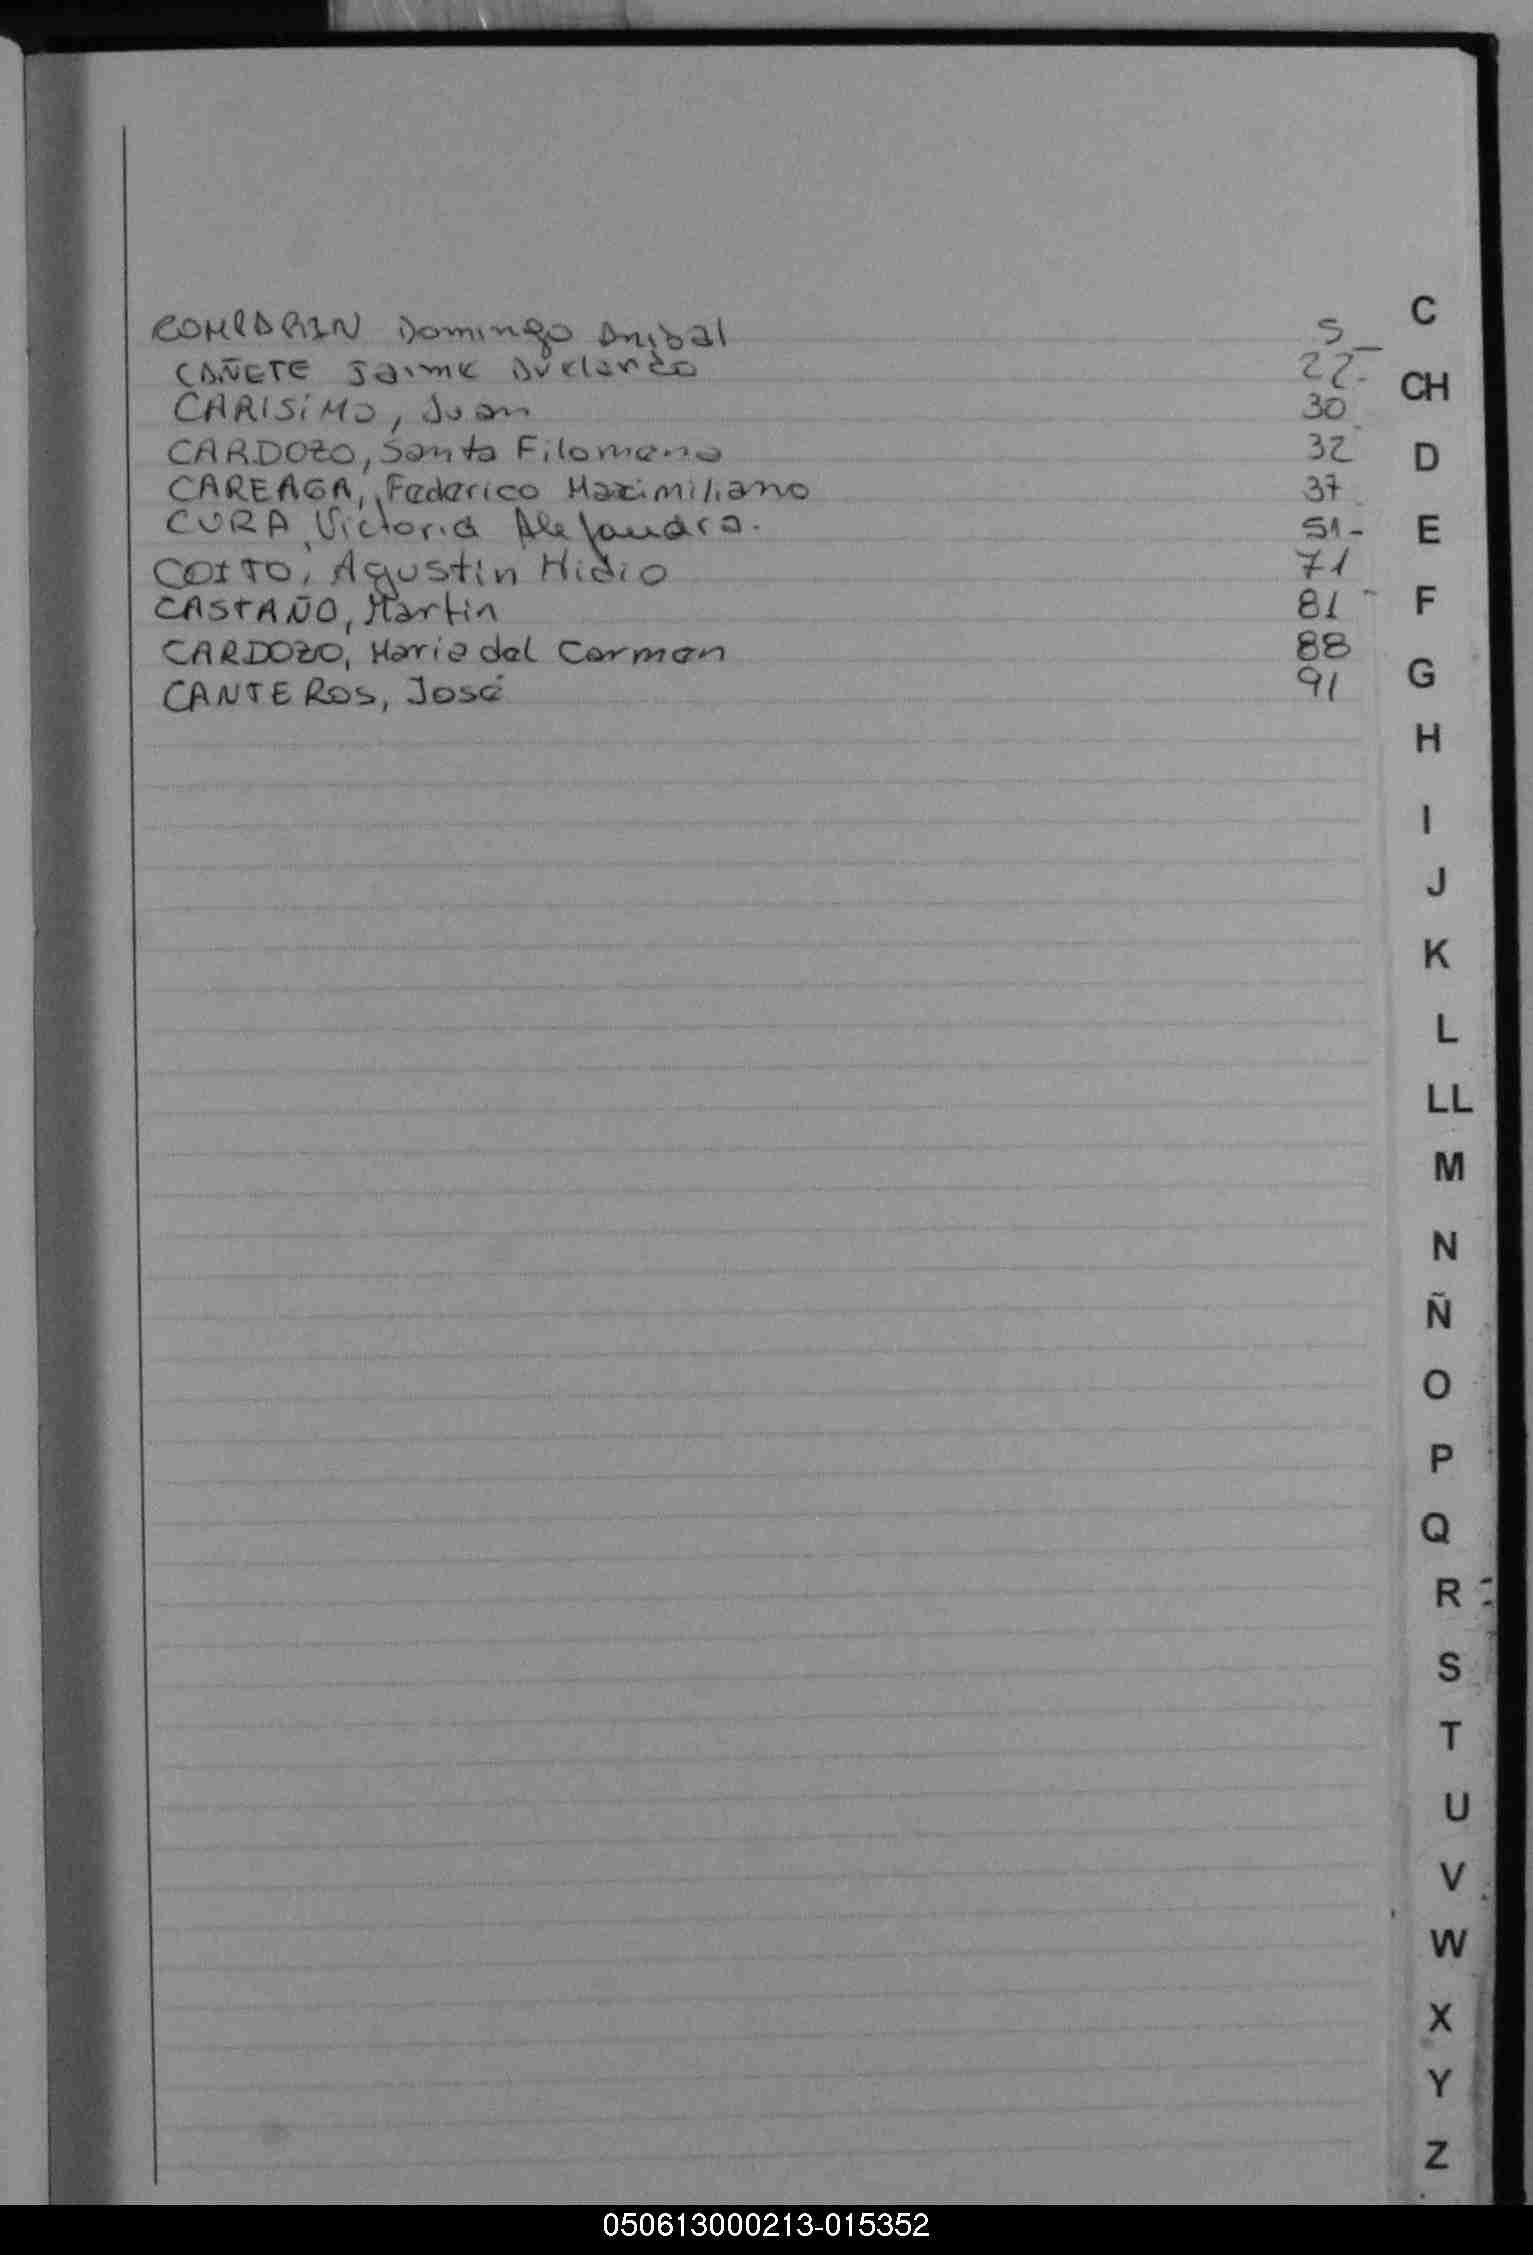 Domingo Anibal 5_
CAÑETE Jaime 22-
CARISiMO, Juan 30
CARDOZO, Santa Filomena 32
CAREAGA, Federico Maximiliano 37
CURA, Victoria Alejandra. 51-
COITO, Agustin Hidio 71
CASTAÑO, Martin 81
CARDOZO, Maria del Carmen 88
CANTEROS, José 91
C
CH
D
E
F
G
H
I
J
K
L
LL
M
N
Ñ
O
P
Q
R
S
T
U
V
W
X
Y
Z
050613000213-015352